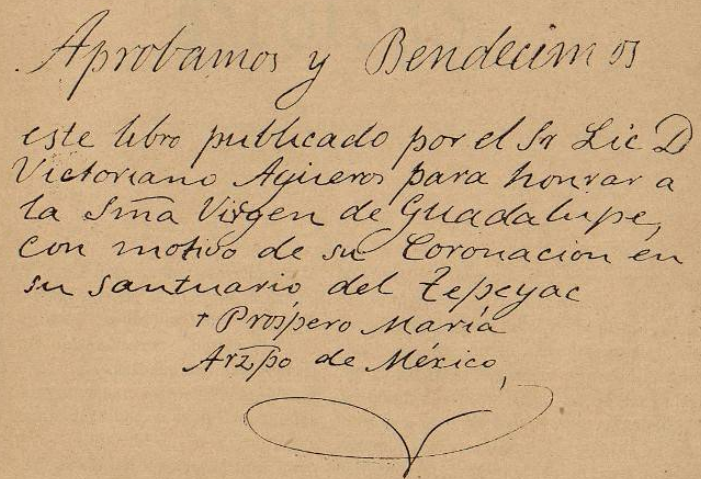 Aprobamos y Bendecimos
este libro publicado por el Sr Lic D
Victoriano Agüeros para honrar a
la Sma Virgen de Guadalupe,
con motivo de su Coronacion en
su santuario del Tepeyac
+ Próspero María
Arzpo de México